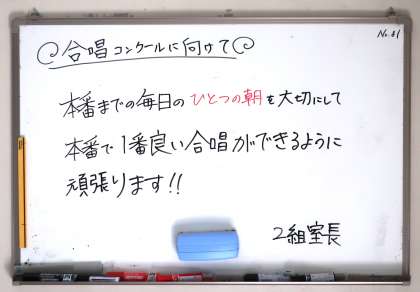 No.41
合唱コンクールに向けて
本番までの毎日のひとつの朝を大切にして
本番で1番良い合唱ができるように
頑張ります!!
2組室長